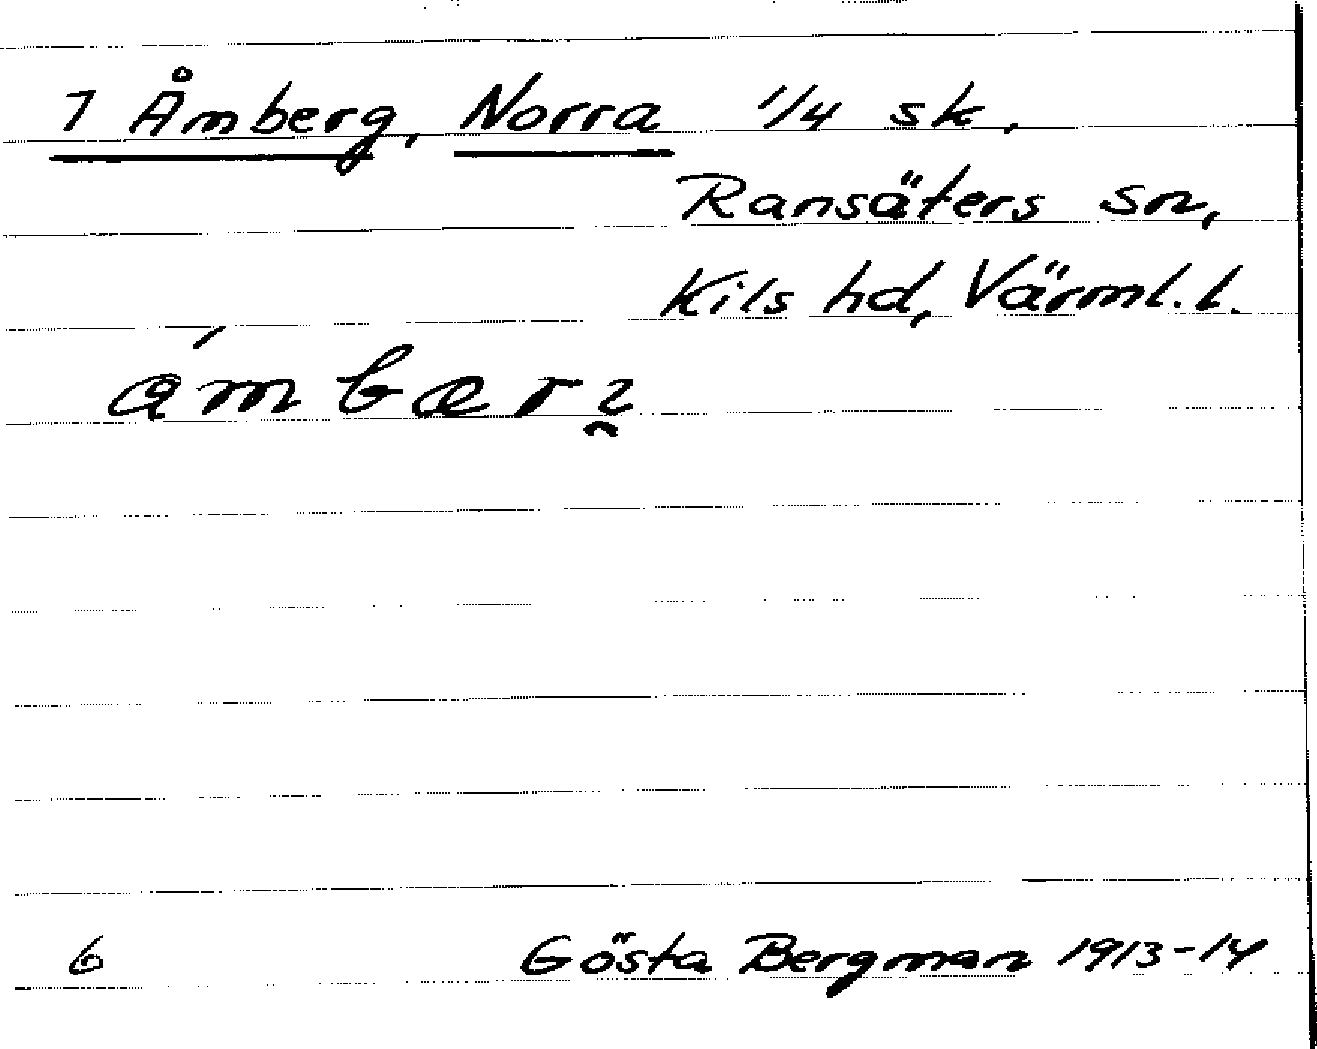 7 Åmberg, Norra 1/4 sk.
Ransäters sn,
Kils hd, Värml. l.
6 Gösta Bergman 1913-14